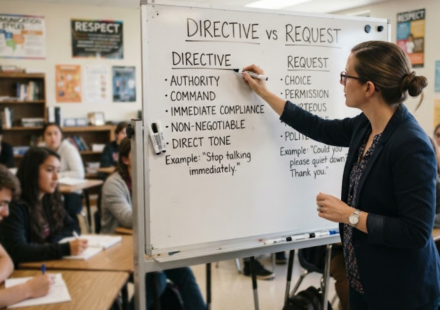 COMMUNICATION
STYLES
RESPECT
DIRECTIVE vs REQUEST
DIRECTIVE
• AUTHORITY
• COMMAND
• IMMEDIATE COMPLIANCE
• NON-NEGOTIABLE
• DIRECT TONE
Example: "Stop talking
immediately."
REQUEST
• CHOICE
• PERMISSION
• POLIT
Example: "Could you
please quiet down
Thank you."
RESPECT